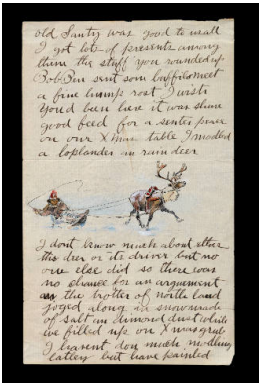 old Santy was good to us all
I got lots of presents among
them the stuff you rounded up
Bob Ben sent som buffilo meet
a fine hump rost I wish
you'd ben here it was shure
good feed for a senter peace
on our Xmas table I modled
a loplander an rain deer
I dont know much about ether
this deer or its driver but no
one else did so there was
no chance for an arguement
as the trotter of north land
joged along in snow made
of salt an dimond dust while
we filled up on Xmas grub
I havent don much modling
latley but have painted